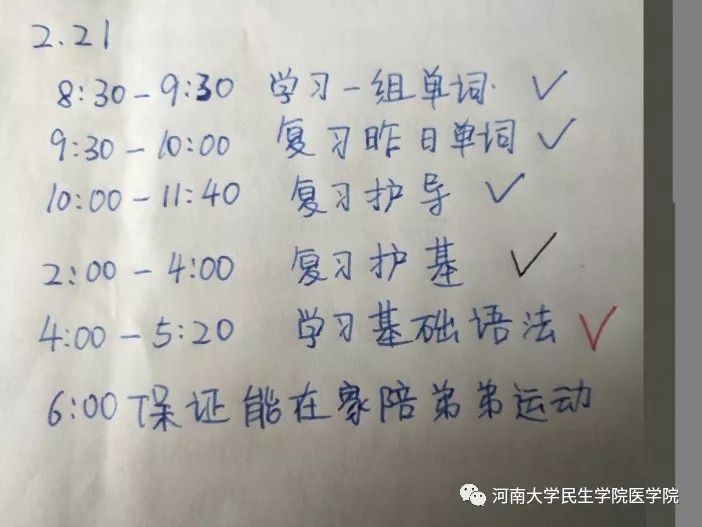 2.21
8:30-9:30 学习一组单词. ✓
9:30-10:00 复习昨日单词 ✓
10:00-11:40 复习护导 ✓
2:00-4:00 复习护基 ✓
4:00-5:20 学习基础语法 ✓
6:00 保证能在家陪弟弟运动
河南大学民生学院医学院